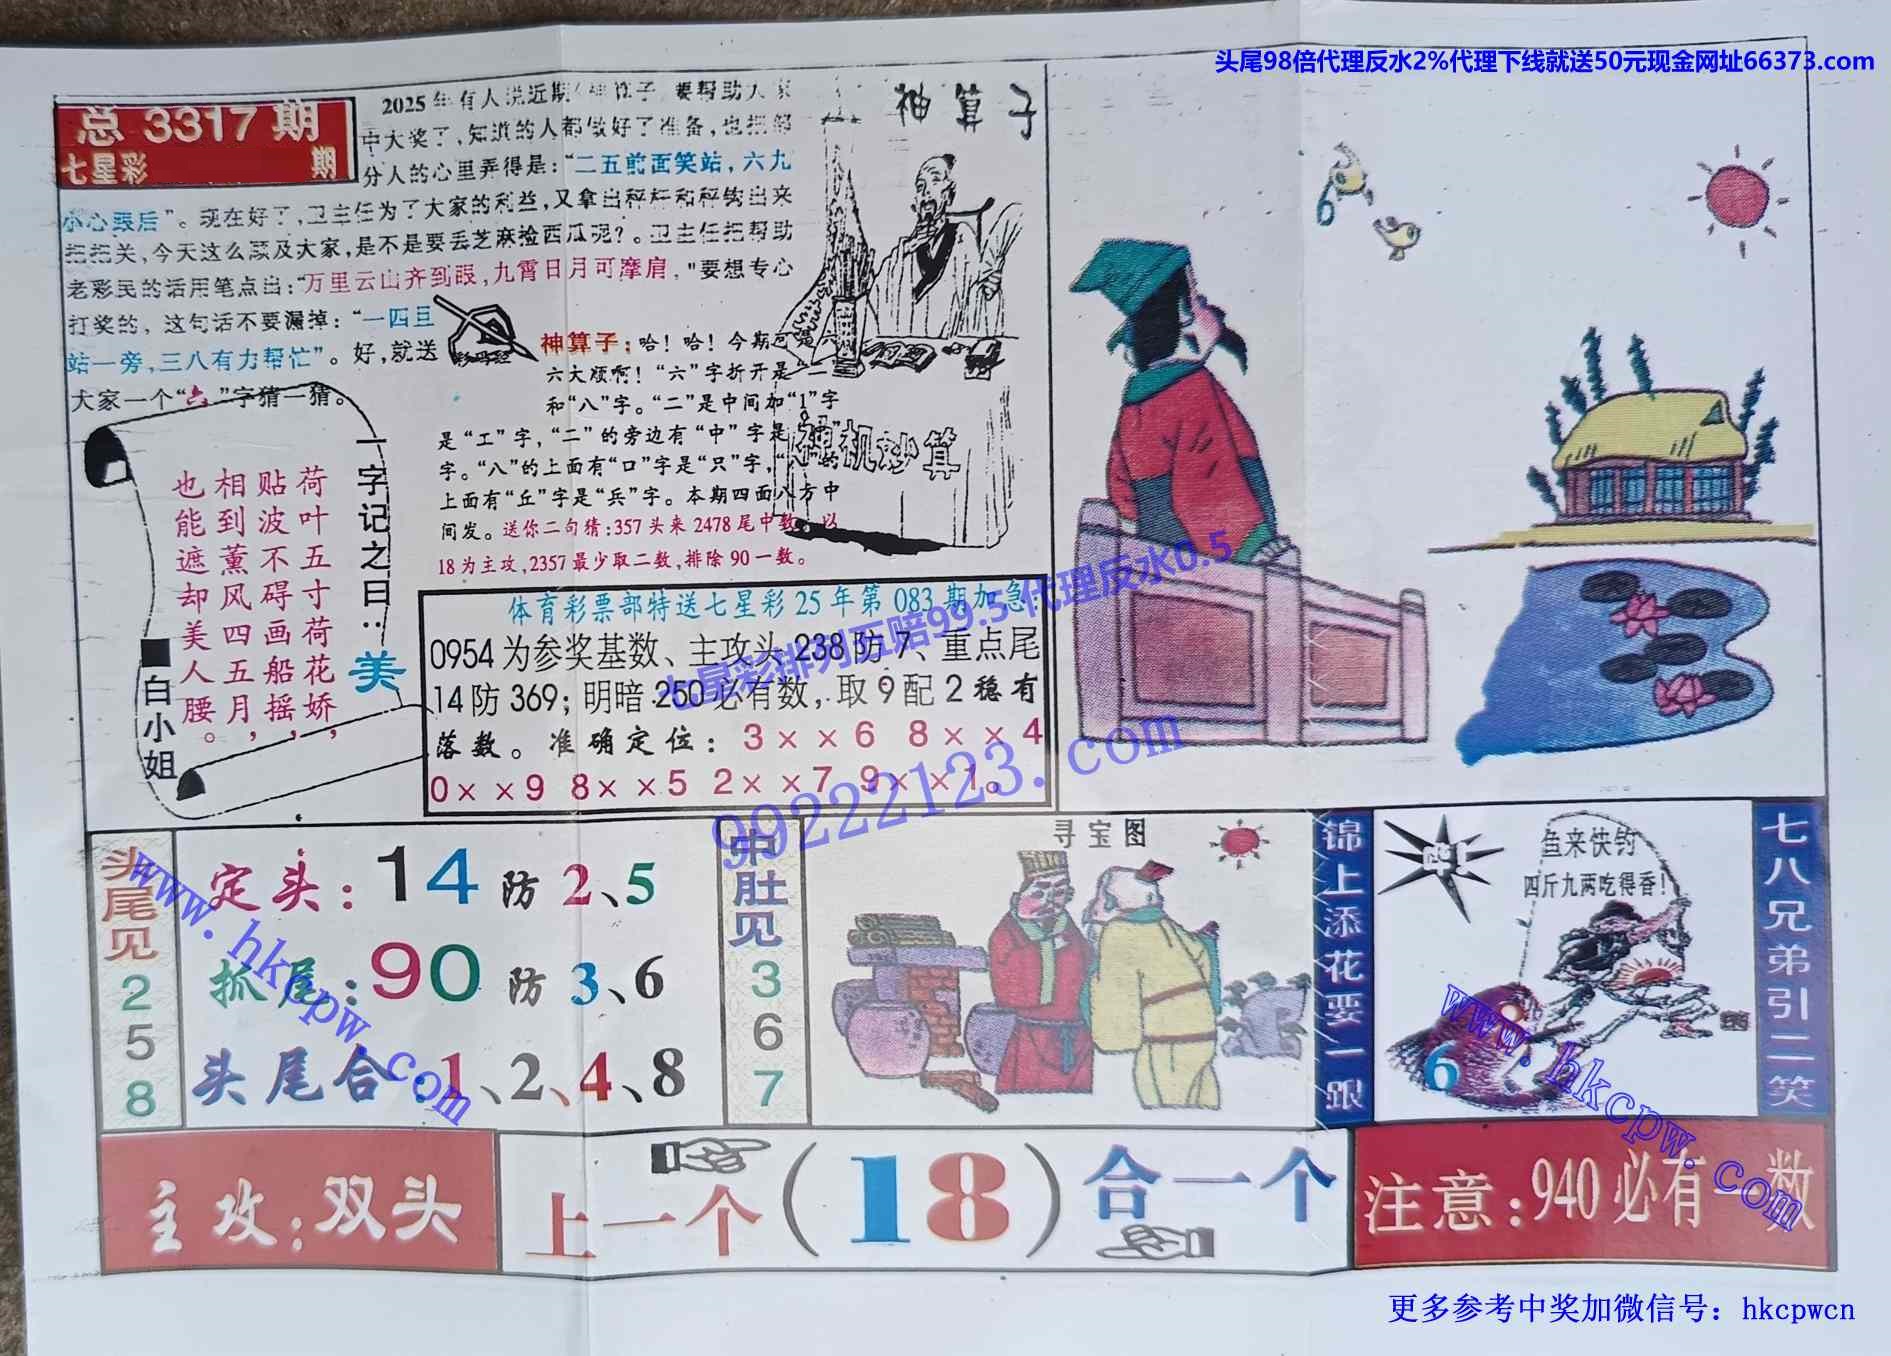 头尾98倍代理反水2%代理下线就送50元现金网址66373.com
总 3317 期
七星彩 期
2025年有人说近期“神算子”要帮助大家
中大奖了，知道的人都做好了准备，也把部
分人的心里弄得是：“二五前面笑站，六九
小心跟后”。现在好了，卫主任为了大家的利益，又拿出秤杆和秤钩出来
把把关，今天这么惠及大家，是不是要丢芝麻捡西瓜呢？。卫主任把帮助
老彩民的话用笔点出：“万里云山齐到眼，九霄日月可摩肩，"要想专心
打奖的，这句话不要漏掉：“一四且
站一旁，三八有力帮忙”。好，就送
大家一个“六”字猜一猜。
神算子
神算子：哈！哈！今期可是六
六大顺啊！“六”字折开是“二”
和“八”字。“二”是中间加“1”字
是“工”字，“二”的旁边有“中”字是
字。“八”的上面有“口”字是“只”字，
上面有“丘”字是“兵”字。本期四面八方中
间发。送你二句猜：357头来2478尾中数，以
18为主攻，2357最少取二数，排除90一数。
神机妙算
一字记之曰：美
荷叶五寸荷花娇，
贴波不碍画船摇，
相到薰风四五月，
也能遮却美人腰。
白小姐
体育彩票部特送七星彩25年第083期加急：
0954为参奖基数、主攻头238防7、重点尾
14防369；明暗250必有数，取9配2稳有
落数。准确定位：3××6 8××4
0××9 8××5 2××7 9××1。
七星彩排列五赔99.5代理反水0.5
99222123.com
6
头尾见258
定头：14防2、5
抓尾：90防3、6
头尾合：1、2、4、8
中肚见367
寻宝图
锦上添花要一跟
鱼来快钓
四斤九两吃得香！
6
七八兄弟引二笑
www.hkcpw.com
www.hkcpw.com
主攻：双头
上一个（18）合一个
注意：940必有一数
更多参考中奖加微信号：hkcpwcn